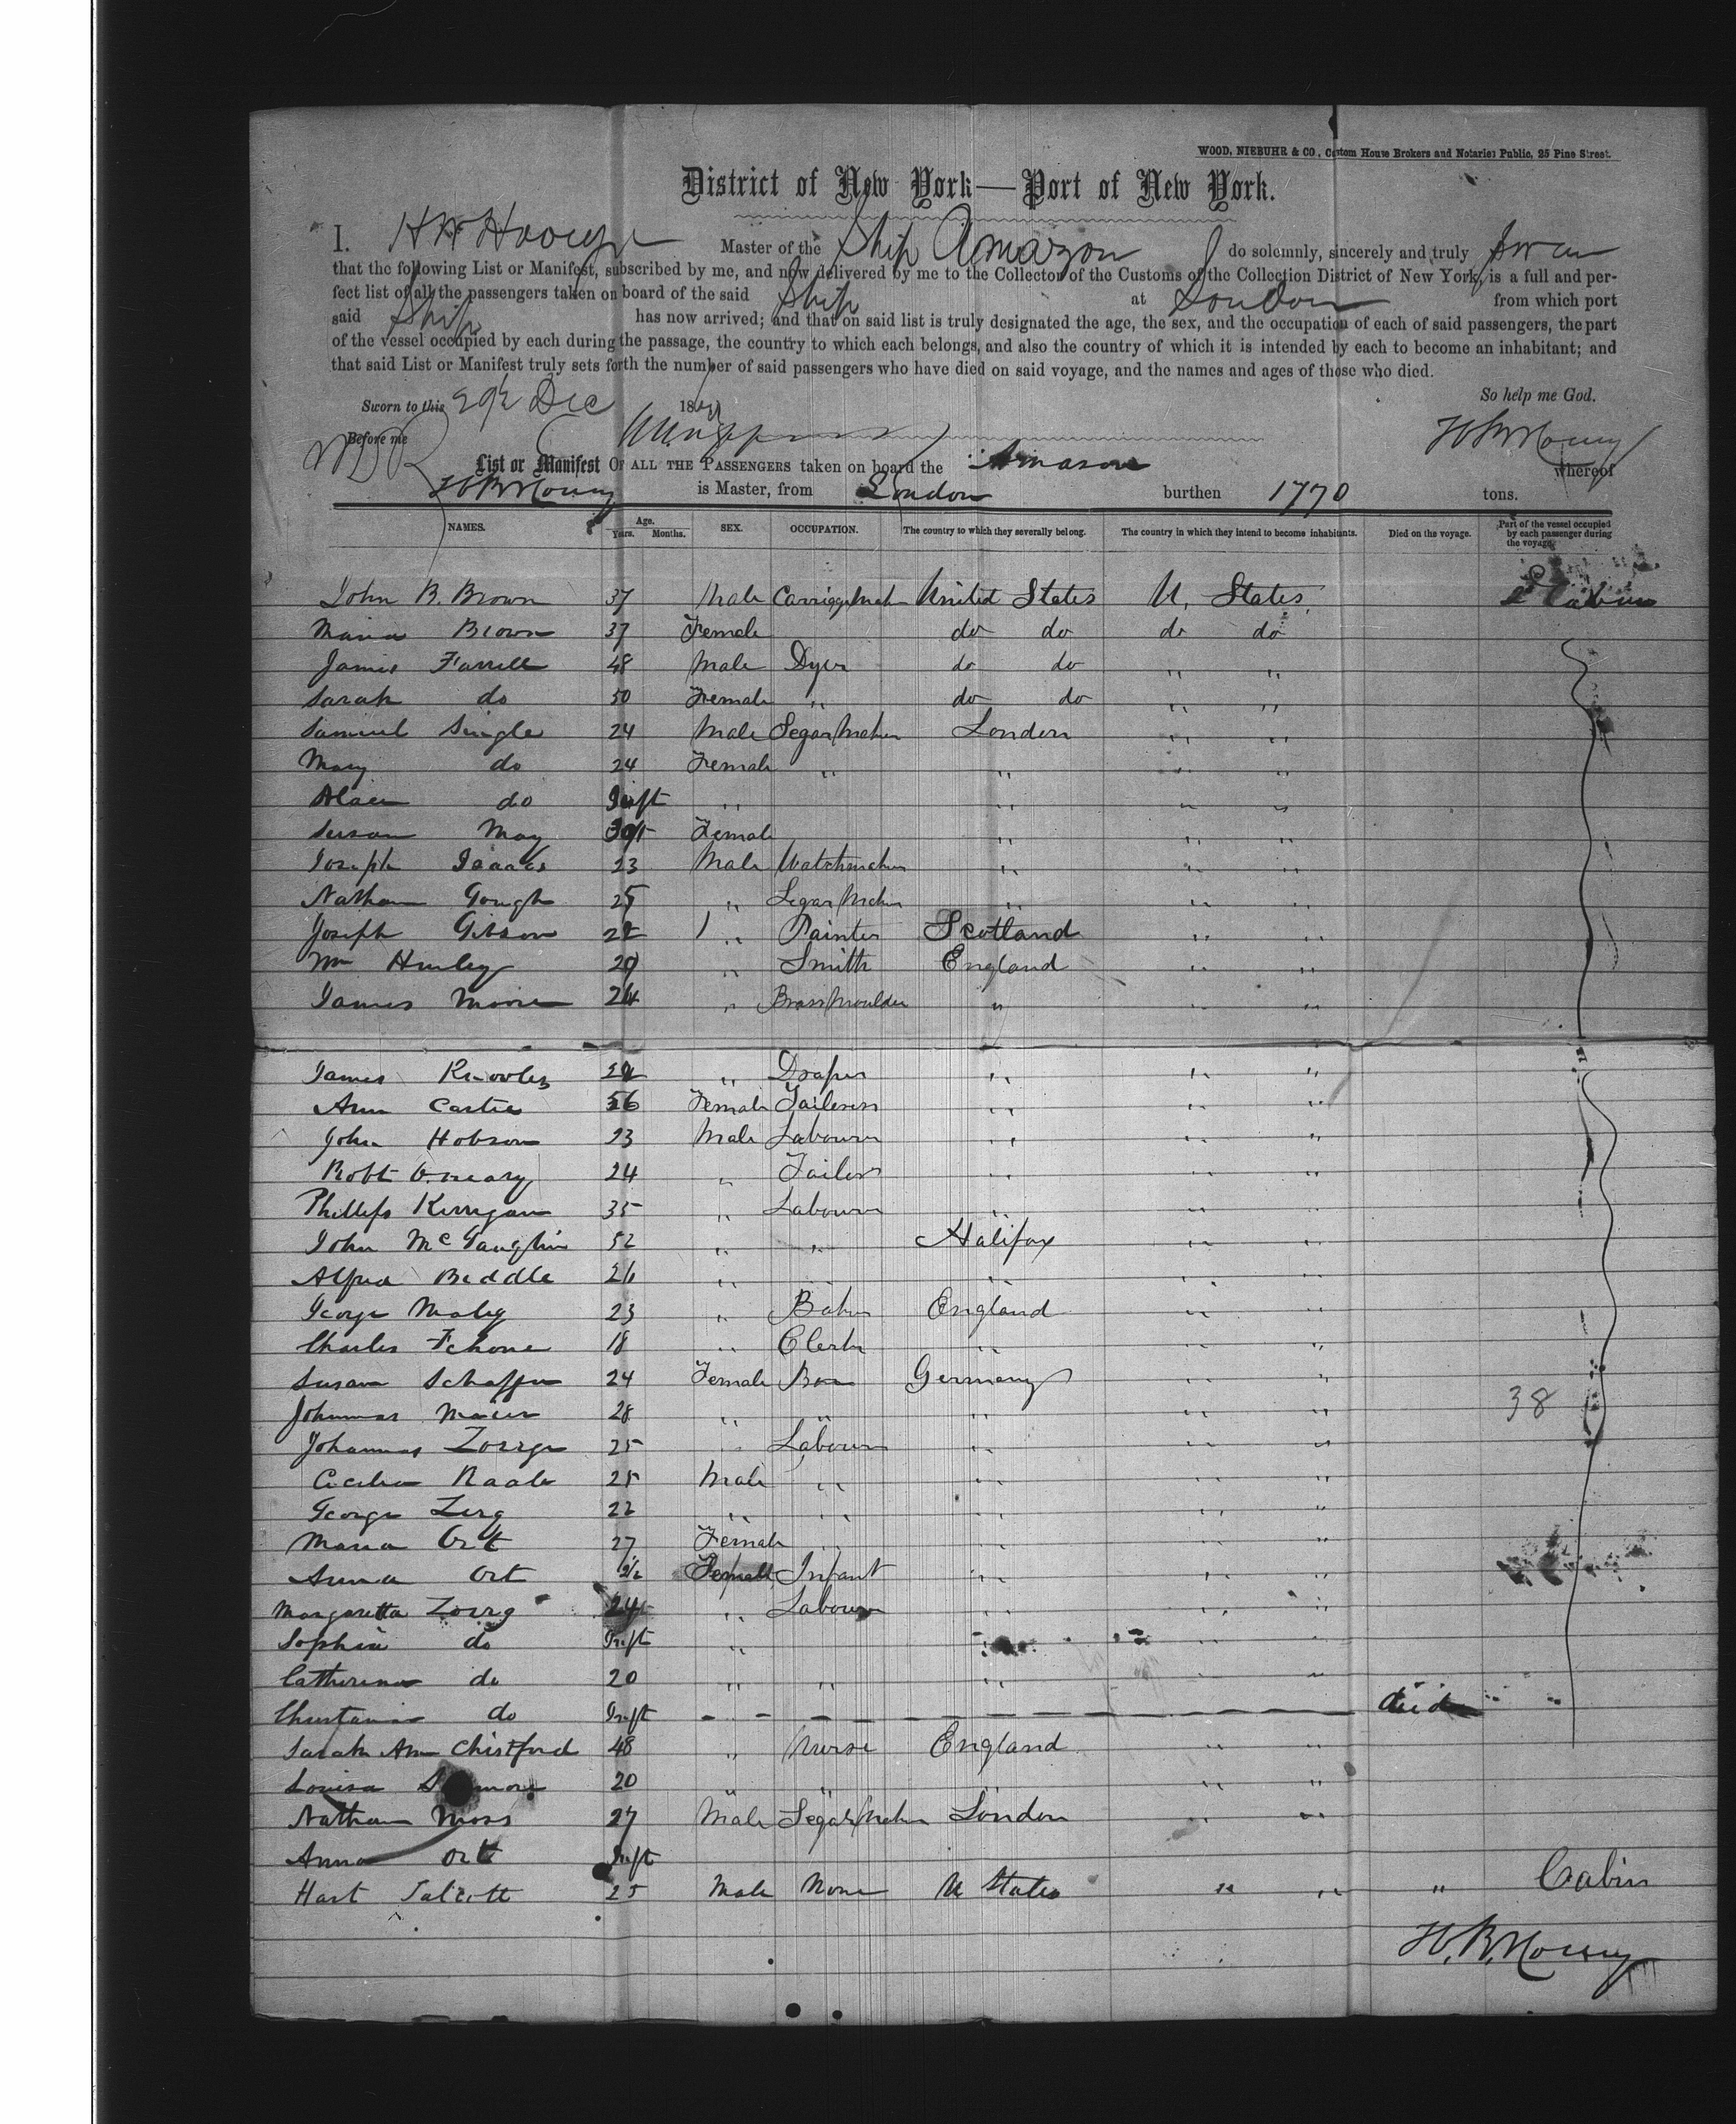 WOOD, NIEBUHR & CO., Custom House Brokers and Notaries Public, 25 Pine Street.
District of New York—Port of New York.
I. Master of the Ship Amazon do solemnly, sincerely and truly Swear
that the following List or Manifest, subscribed by me, and now delivered by me to the Collector of the Customs of the Collection District of New York, is a full and per-
fect list of all the passengers taken on board of the said Ship at London from which port
said Ship has now arrived; and that on said list is truly designated the age, the sex, and the occupation of each of said passengers, the part
of the vessel occupied by each during the passage, the country to which each belongs, and also the country of which it is intended by each to become an inhabitant; and
that said List or Manifest truly sets forth the number of said passengers who have died on said voyage, and the names and ages of those who died.
So help me God.
Sworn to this 29th Dec 186
Before me
List or Manifest OF ALL THE PASSENGERS taken on board the Amazon whereof
is Master, from London burthen 1770 tons.
NAMES. Age. Years. Months. SEX. OCCUPATION. The country to which they severally belong. The country in which they intend to become inhabitants. Died on the voyage. Part of the vessel occupied by each passenger during the voyage.
John B. Brown 37 Male United States U. States 2 Cabin
Maria Brown 37 Female do do do do
James Farrell 48 Male Dyer do do " "
Sarah do 50 Female " do do " "
Samuel Single 24 Male Segar Maker London " "
Mary do 24 Female " " " "
do Inft " " " "
May Female " " "
Joseph Isaacs 23 Male Watchmaker " " "
Nathan Gough 25 " Segar Maker " " "
Joseph Gibson 22 " Painter Scotland " "
Wm Hurley 29 " Smith England " "
James Moore 24 " Brass Moulder " " "
James Knowles " Draper " " "
Ann 56 Female Tailoress " " "
John Hobson 23 Male Labourer " " "
Robt 24 " Tailor " " "
Phillips Kerrigan 35 " Labourer " " "
John 52 " " Halifax " "
Beddle 26 " " " " "
George 23 " Baker England " "
Charles 18 " Clerk " " "
Susan 24 Female Germany " "
28 " " " " " 38
Johannas 25 " Labourer " " "
25 Male " " " "
George Zerg 22 " " " " "
Maria Ort 27 Female " " " "
Anna Ort Female Infant " " "
Margaretta Zorrg 24 " Labourer " " "
Sophia do Inft " " " "
Catherina do 20 " " " " "
do Inft died " "
Sarah Ann Chistford 48 " Nurse England " "
Louisa 20 " " " " "
Nathan Moss 27 Male Segar Maker London " "
Anna Ort Inft
Hart 25 Male None U States " " " Cabin